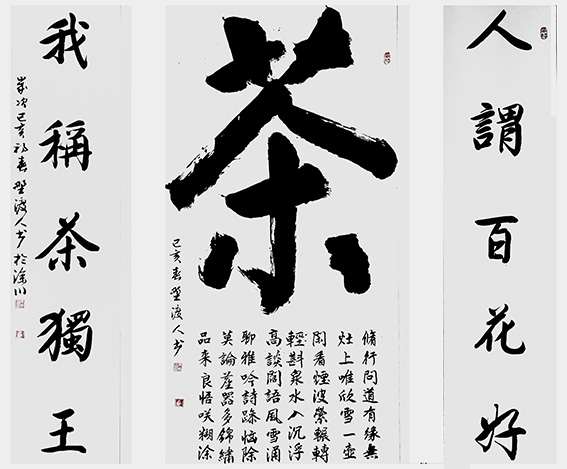 人謂百花好
茶
脩行问道有緣無
灶上唯欣雪一壺
閑看煙波縈輾轉
輕斟泉水入沉浮
高談闊語風雪涌
聊雅吟詩惱除
莫論器多錦繡
品来良悟咲糊涂
己亥春墅渡人书
我稱茶獨王
歲次己亥初春墅渡人书於涂川